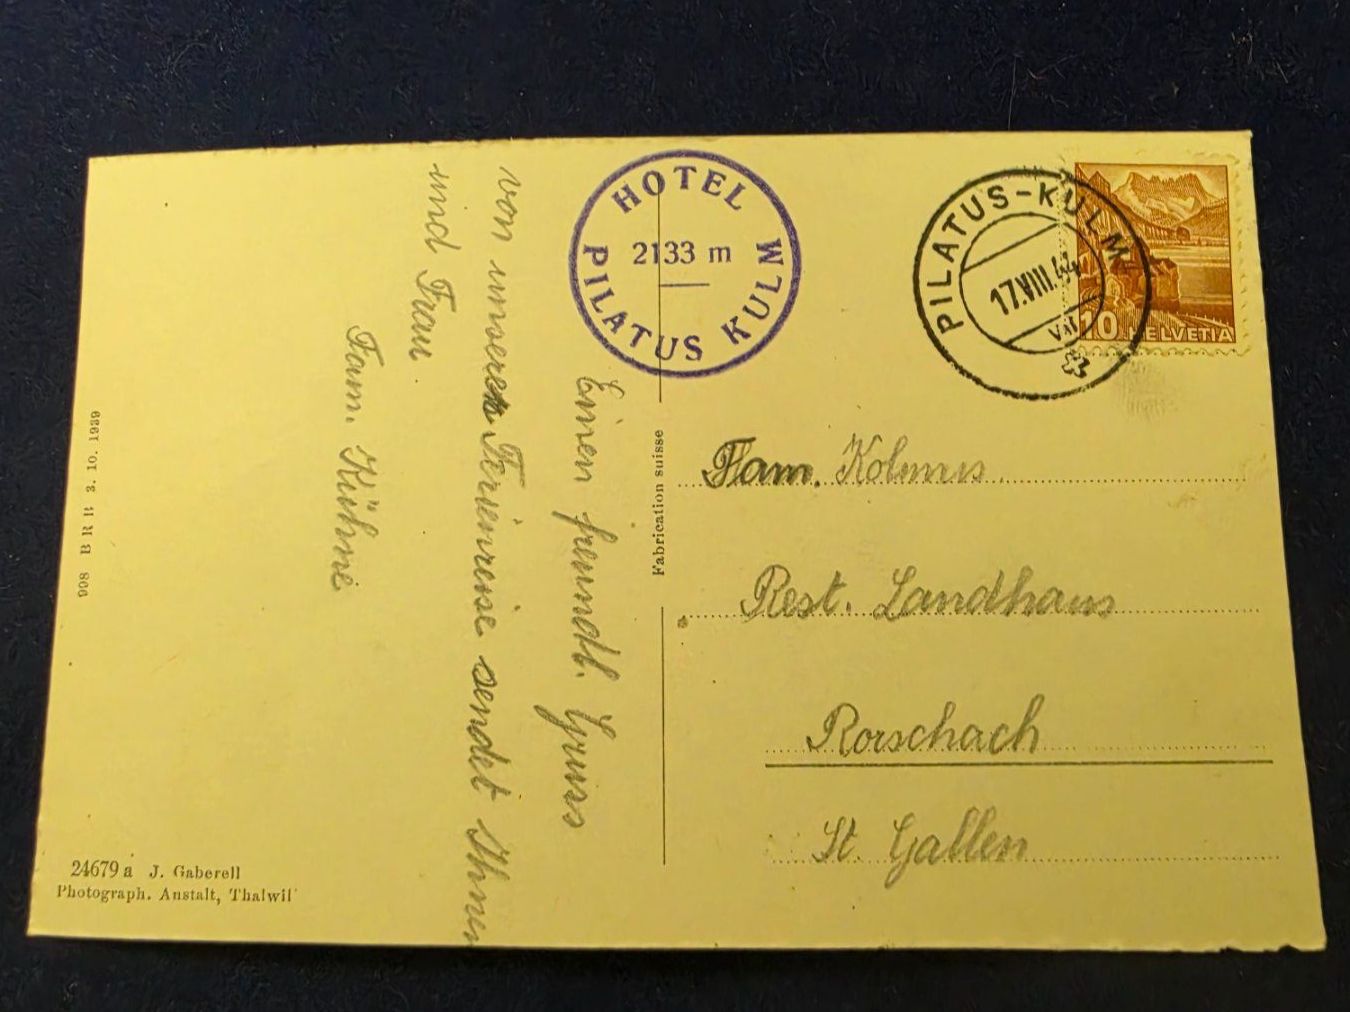 HOTEL
2133 m
PILATUS KULM
PILATUS-KULM
17.VIII.44
10 HELVETIA
Einen freundl. Gruss
von unserer Ferienreise sendet Ihnen
und Frau
Fam. Kühne
Fabrication suisse
Fam. Kolmus.
Rest. Landhaus
Rorschach
St. Gallen
998 B R B 3. 10. 1939
24679 a J. Gaberell
Photograph. Anstalt, Thalwil